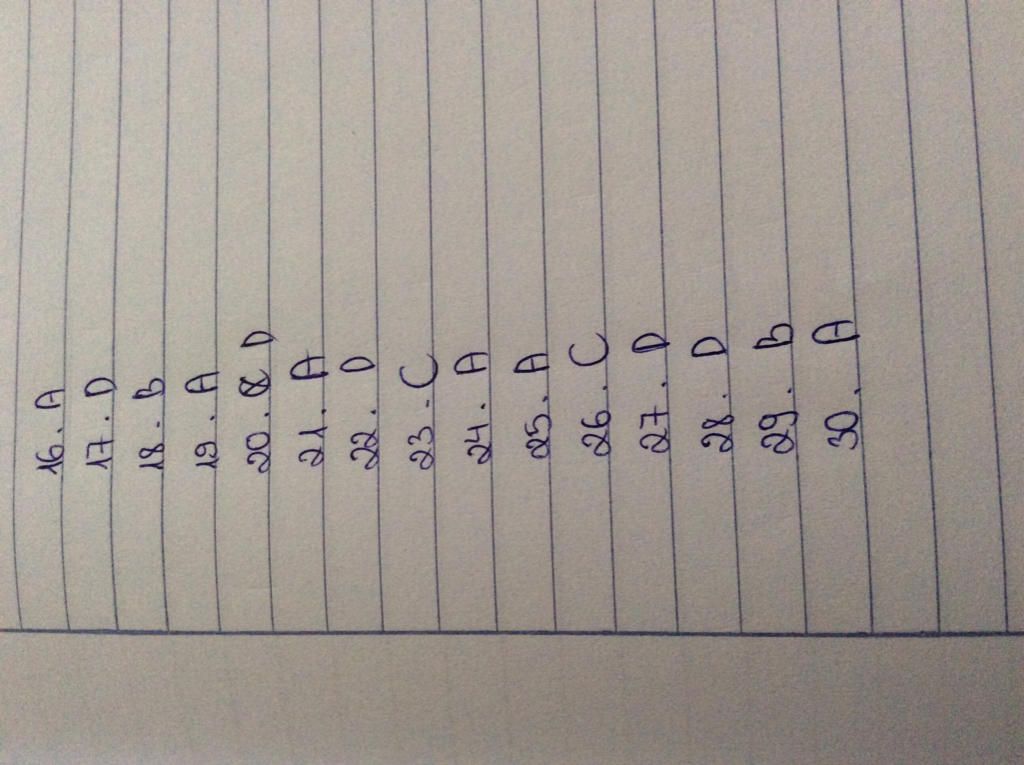 16. A
17. D
18. B
19. A
20. D
21. A
22. D
23. C
24. A
25. A
26. C
27. D
28. D
29. B
30. A